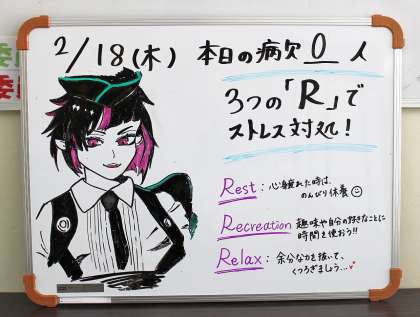 2/18(木) 本日の病欠 0 人
3つの「R」で
ストレス対処!
Rest:心身疲れた時は、
のんびり休養
Recreation 趣味や自分の好きなことに
時間を使おう!!
Relax:余分な力を抜いて、
くつろぎましょう...